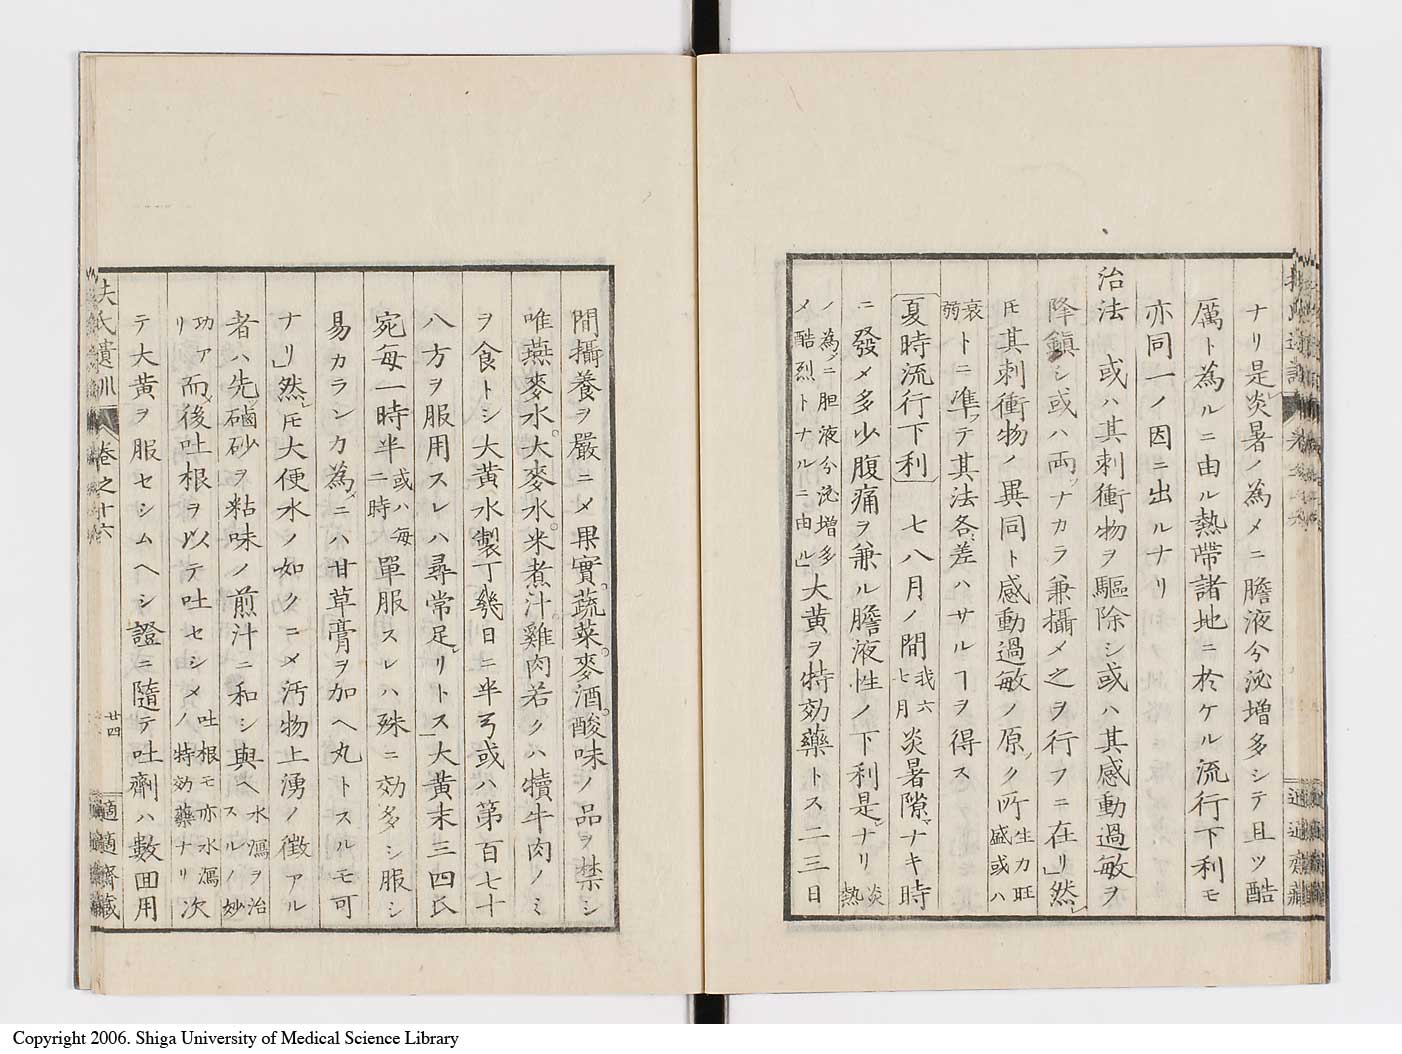 ナリ是レ炎暑ノ為メニ膽液分泌増多シテ且ツ酷
厲ト為ルニ由ル熱帶諸地ニ於ケル流行下利モ
亦同一ノ因ニ出ルナリ
治法 或ハ其刺衝物ヲ驅除シ或ハ其感動過敏ヲ
降鎮シ或ハ両ツナカラ兼攝メ之ヲ行フニ在リ」然レ
𪜈其刺衝物ノ異同ト感動過敏ノ原ク所生力旺盛或ハ
衰弱トニ準テ其法各差ハサルヿヲ得ス
夏時流行下利 七八月ノ間我六七月炎暑隙ナキ時
ニ發メ多少腹痛ヲ兼ル膽液性ノ下利是レナリ炎熱
ノ為メニ胆液分泌増多メ酷烈トナルニ由ル大黄ヲ特効藥トス二三日
間攝養ヲ嚴ニメ果實。蔬菜。麥酒。酸味ノ品ヲ禁シ
唯燕麥水。大麥水。米煮汁。雞肉若クハ犢牛肉ノミ
ヲ食トシ大黄水製丁幾日ニ半弓或ハ第百七十
八方ヲ服用スレハ尋常足レリトス」大黄末三四氏
宛每一時半或ハ每二時單服スルハ殊ニ効多シ服シ
易カラシカ為メニハ甘草膏ヲ加ヘ丸トスルモ可
ナリ」然レ𪜈大便水ノ如クニメ汚物上湧ノ徴アル
者ハ先磠砂ヲ粘味ノ煎汁ニ和シ與ヘ水瀉ヲ治スルノ妙
功アリ而メ後吐根ヲ以テ吐セシメ吐根モ亦水瀉ノ特効藥ナリ次
テ大黄ヲ服セシムヘシ證ニ隨テ吐劑ハ數囬用
扶氏遺訓 卷之十六 廿四 適適齋藏